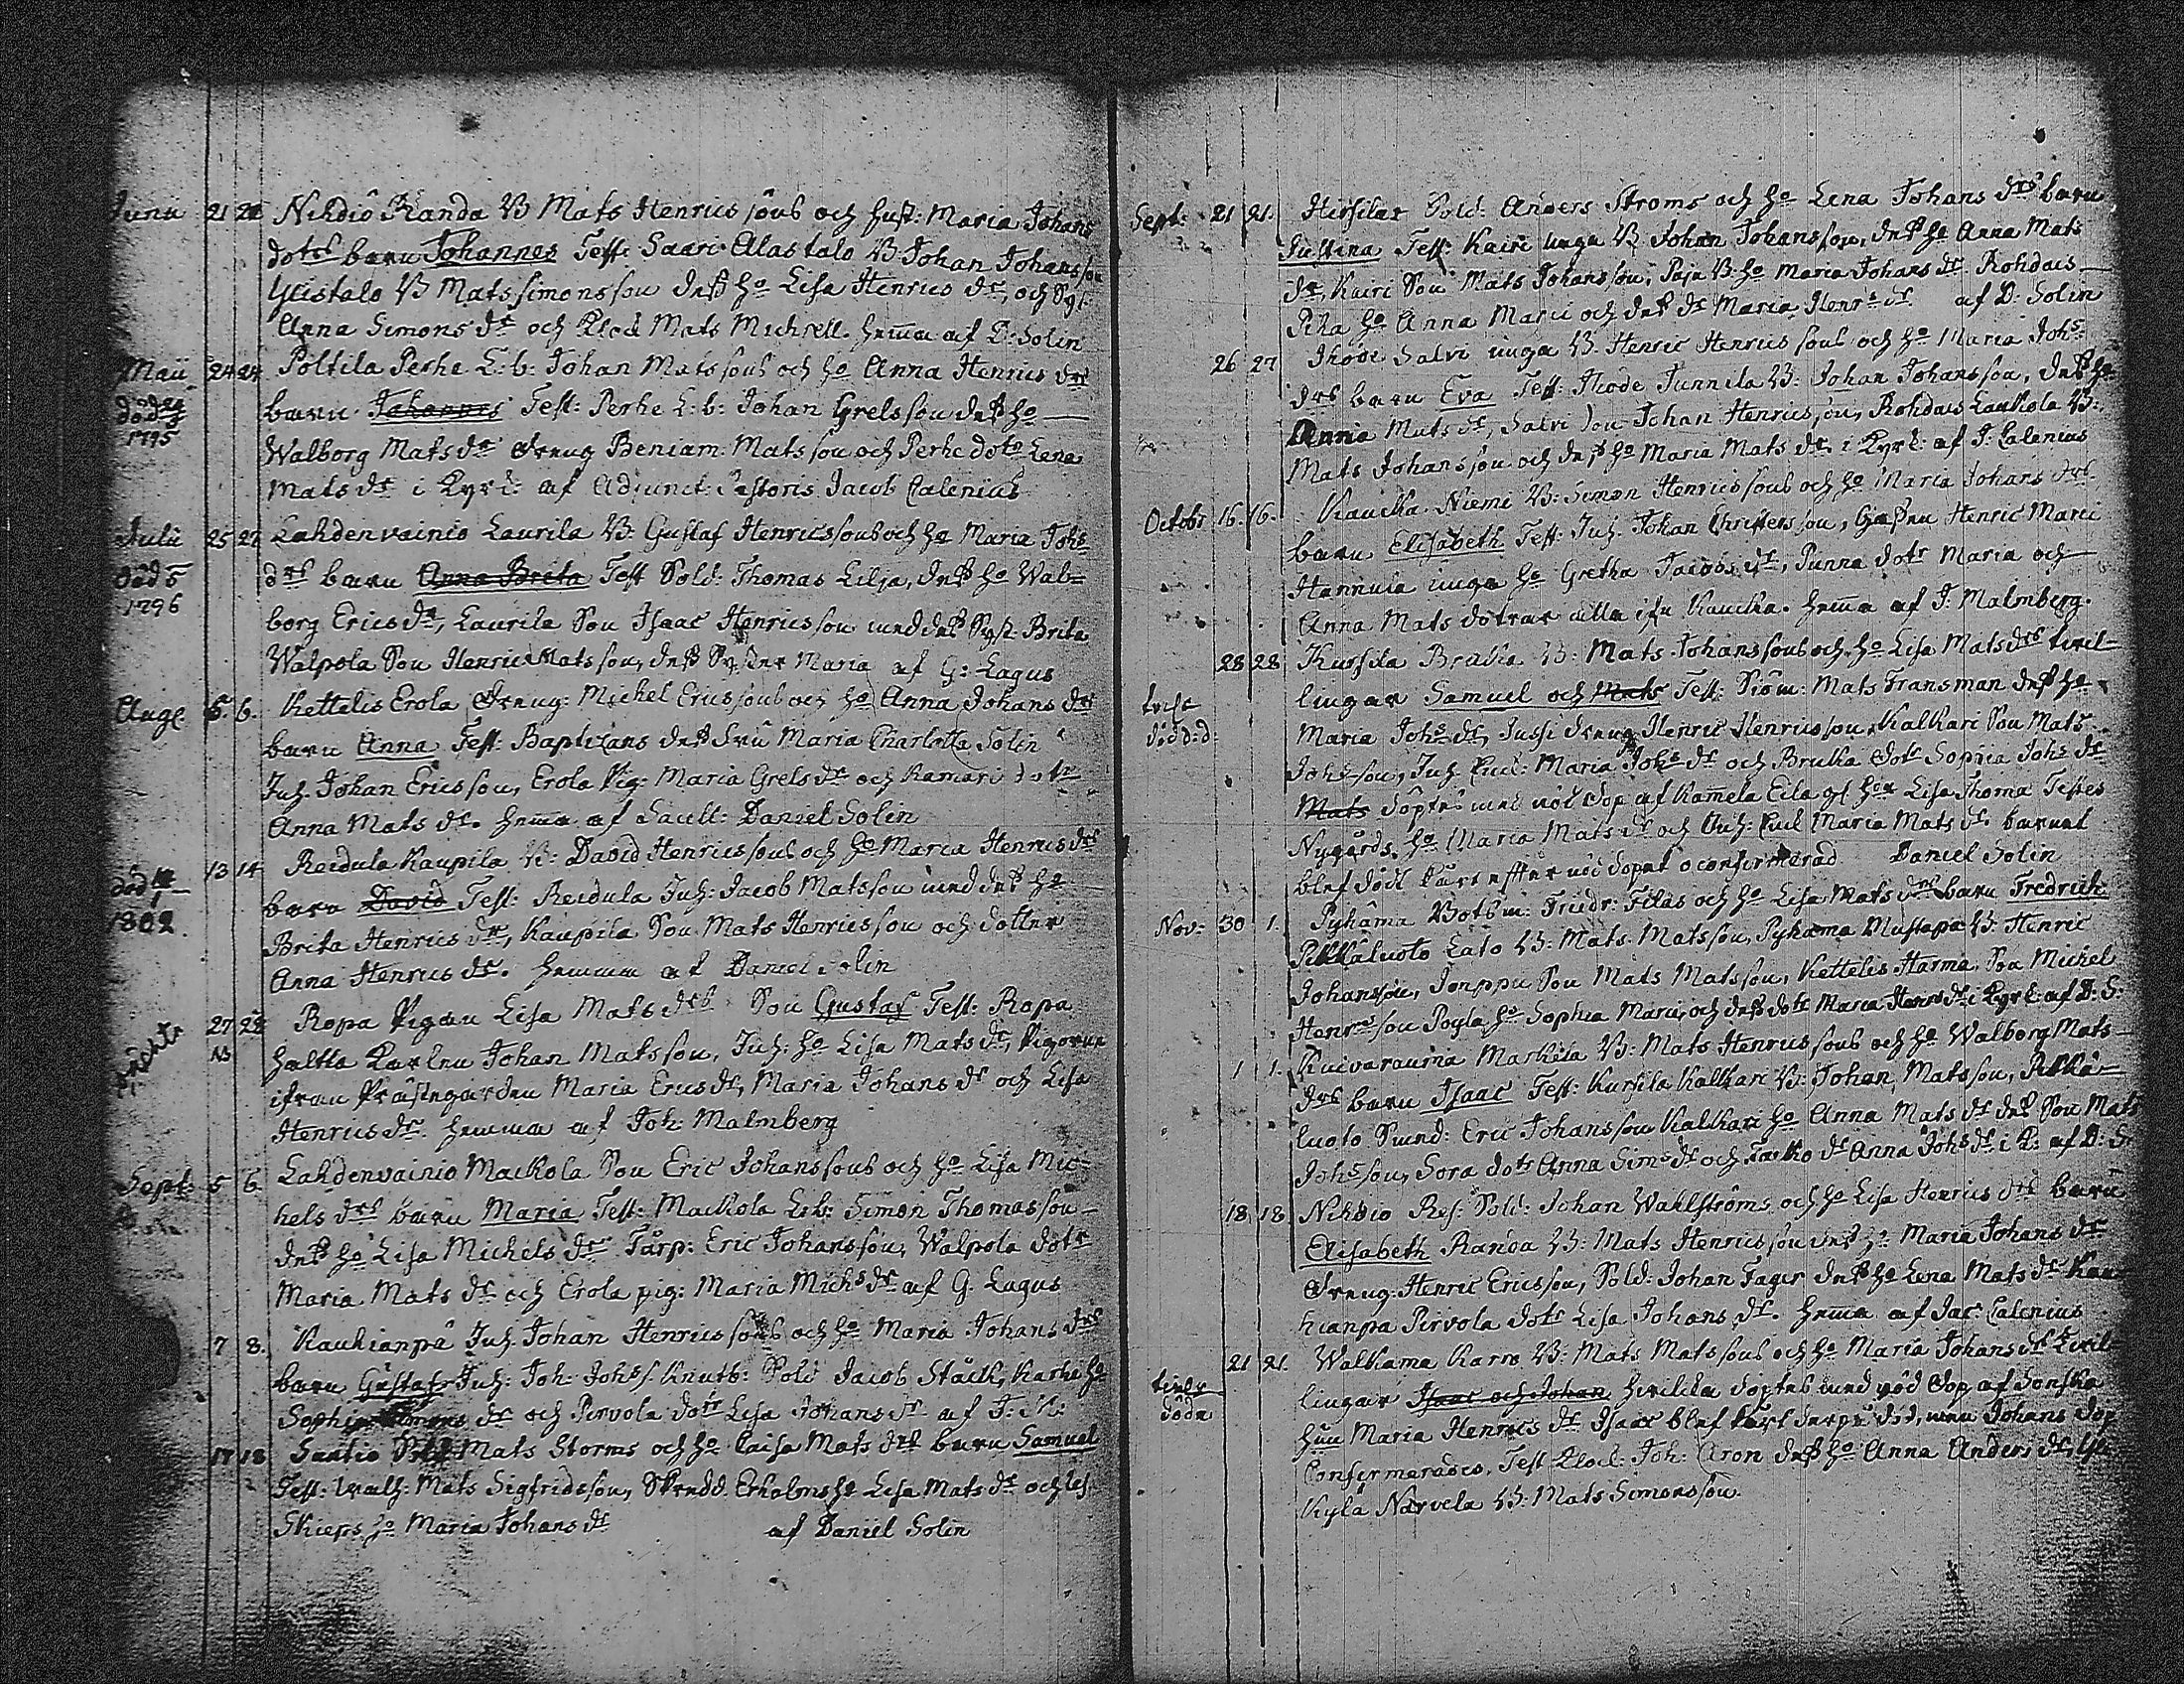 Junii 21 22 Nihdiö Randa B Mats Henrics sons och hust: Maria Johans
dotrs barn Johannes Test: Saari Alastalo B Johan Johansson
Ylistalo B Mats Simonsson dess ho Lisa Henrics dr, och Syst
Anna Simons dr och Klock Mats Michaell. hema af D: Solin
Maii 24 24 Poltila Perhe L:b: Johan Matssons och ho Anna Henrics drs
död
1795
barn Johannes Test: Perhe L:b: Johan Grelsson dess ho
Walborg Mats dr Dreng Beniam: Matsson och Perhe dotr Lena
Mats dr i Kyrk: af Adjunct: Pastoris Jacob Calenius
Julii 25 27 Lahdenvainio Laurila B: Gustaf Henricssons och ho Maria Johs
död 5
1796
drs barn Anna Brita Test Sold: Thomas Lilja, dess ho Wal=
borg Erics dr, Laurila Son Isaac Henricsson med dess Syst: Brita
Walpola Son Henric Matsson, dess Syster Maria af G: Lagus
Aug: 5. 6. Kettelis Erola Dreng: Michel Ericssons och ho Anna Johans drs
barn Anna Test: Baptizans dess Fru Maria Charlotta Solin
Inh. Johan Ericsson, Erola Pig: Maria Grels dr och Kamari dotr
Anna Mats dr. hema af Sacell: Daniel Solin
13 14 Reidula Kaupila B: David Henricssons och ho Maria Henrics drs
död
1802
barn David Test: Reidula Inh: Jacob Matsson med dess ho
Brita Henrics dr, Kaupila Son Mats Henricsson och dotter
Anna Henrics dr. hemma af Daniel Solin
27 28 Ropa Pigan Lisa Mats drs Son Gustaf Test: Ropa
N3
halta Karlen Johan Matsson, Inh: ho Lisa Mats dr, Pigorne
ifran Prästegården Maria Erics dr, Maria Johans dr och Lisa
Henrics dr. hemma af Joh: Malmberg
Sept: 5 6 Lahdenvainio Mackola Son Eric Johanssons och ho Lisa Mic=
hels drs barn Maria Test: Mackola L:b: Simon Thomasson
dess ho Lisa Michels dr Tårp: Eric Johansson, Walpola dotr
Maria Mats dr och Erola pig: Maria Michs dr af G. Lagus
7 8. Kauhianpä Inh. Johan Henricssons och ho Maria Johans drs
barn Gustaf Inh: Joh: Johss. Knuts: Sold Jacob Stäck, Karhe ho
Sophia Simons dr och Pirvola dotr Lisa Johans dr af J: M:
17 18 Santio Mats Storms och ho Caisa Mats drs barn Samuel
Test: Mats Sigfridsson, Skredd. Erholms ho Lisa Mats dr och
Skieps ho Maria Johans dr af Daniel Solin
Sept: 21 21. Hirsilar Sold: Anders Ströms och ho Lena Johans drs barn
Justina Test: Kairi unga B Johan Johansson, dess ho Anna Mats
dr, Kairi Son Mats Johansson, Paja B: ho Maria Johans dr Rohdais
Piha ho Anna Marii och dess dr Maria Henrs dr af D: Solin
26 27 Ihode Salvi unga B. Henric Henrics sons och ho Maria Johs
drs barn Eva Test: Ihode Junnila B: Johan Johansson, dess ho
Annia Mats dr, Salvi Son Johan Henricsson, Rohdais Laukola B:
Mats Johansson och dess ho Maria Mats dr i Kyrk: af J: Calenius
Octobr 16. 16. Kaucka Niemi B: Simon Henricssons och ho Maria Johans drs
barn Elisabeth Test: Inh: Johan Christersson, Henric Marci
Hannula unga ho Gretha Jacobs dr, Punna dotr Maria och
Anna Mats dotrar alla ifr Kaucka. hema af J. Malmberg.
28 28 Kursila Brucka B: Mats Johanssons och ho Lisa Mats drs tvil=
lingar Samuel och Mats Test: Siöm: Mats Fransman dess ho
död: d:
Maria Johs dr, Jussi dreng Henric Henricsson, Kalkari Son Mats
Johsson, Inh Enk: Maria Johs dr och Brucka dotr Sophia Johs dr
Mats döptes med nöd dop af Kamela Eila gl hon Lisa Thoma Testes
Nygårds. ho Maria Mats dr och Inh: Enk Maria Mats dr barnet
blef dödt kart efter nöd dopet oconfirmerad Daniel Solin
Nov: 30 1. Pyhäma Botsm: Fridr: Filas och ho Lisa Mats drs barn Fredrich
Pitkäluoto Lato B: Mats Matsson, Pyhäma Mustapä B: Henric
Johansson, Jonppu Son Mats Matsson, Kettelis Harma Son Michel
Henrsson Poyla ho Sophia Marii, och dess dotr Maria Henrs dr i Kyrk: af D: S:
1 1. Kuivarauma Markula B: Mats Henricssons och ho Walborg Mats
drs barn Isaac Test: Kursila Kalkari B: Johan Matsson, Pitkä=
luoto Svend: Eric Johansson Kalkari ho Anna Mats dr dess Son Mats
Johsson, Sora dotr Anna Sims dr och Tarko dr Anna Johs dr i K: af D: S:
18. 18. Nihdio Res: Sold: Johan Wahlströms och ho Lisa Henrics drs barn
Elisabeth Randa B: Mats Henricsson dess ho Maria Johans dr
Dreng: Henric Ericsson, Sold: Johan Fager dess ho Lena Mats dr Kau=
hianpä Pirvola dotr Lisa Johans dr. hema af Jac: Calenius
21 21. Walkama Karro B: Mats Matssons och ho Maria Johans drs tvil=
döda
lingar Isaac och Johan hvilka döptes med nöd dop af Sonska
hun Maria Henrics dr Isaac blef kart derpå död, men Johans dop
Confirmerades. Test Klock: Joh: Aron dess ho Anna Anders dr,
Kylä Narvela B: Mats Simonsson.